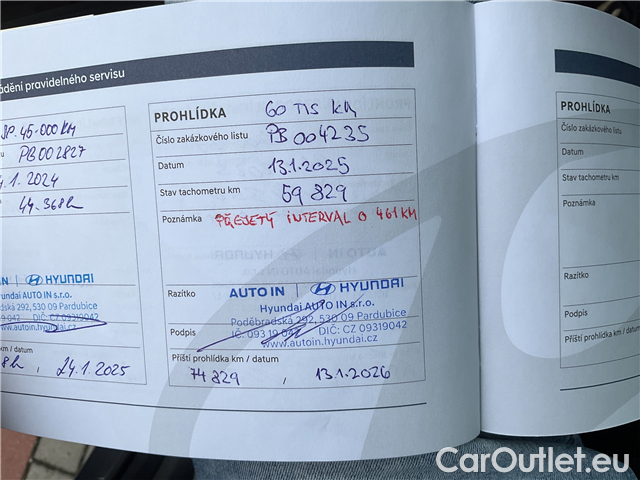 ádění pravidelného servisu
SP. 45-000 KM
PB 002827
.1.2024
44.368
IN | HYUNDAI
yundai AUTO IN s.r.o.
radská 292, 530 09 Pardubice
DIČ: CZ 09319042
www.autoin.hyundai.cz
km / datum
, 24.1.2025
PROHLÍDKA 60 TIS KM
Číslo zakázkového listu PB 004235
Datum 13.1.2025
Stav tachometru km 59 829
Poznámka PŘEJETÝ INTERVAL O 461 KM
Razítko AUTO IN | HYUNDAI
Hyundai AUTO IN s.r.o.
Poděbradská 292, 530 09 Pardubice
Podpis IČ: 093 19 042 DIČ: CZ 09319042
www.autoin.hyundai.cz
Příští prohlídka km / datum
74 829 , 13.1.2026
PROHLÍDKA
Číslo zakázkového listu
Datum
Stav tachometru km
Poznámka
Razítko
Podpis
Příští prohlídka km / datum
CarOutlet.eu